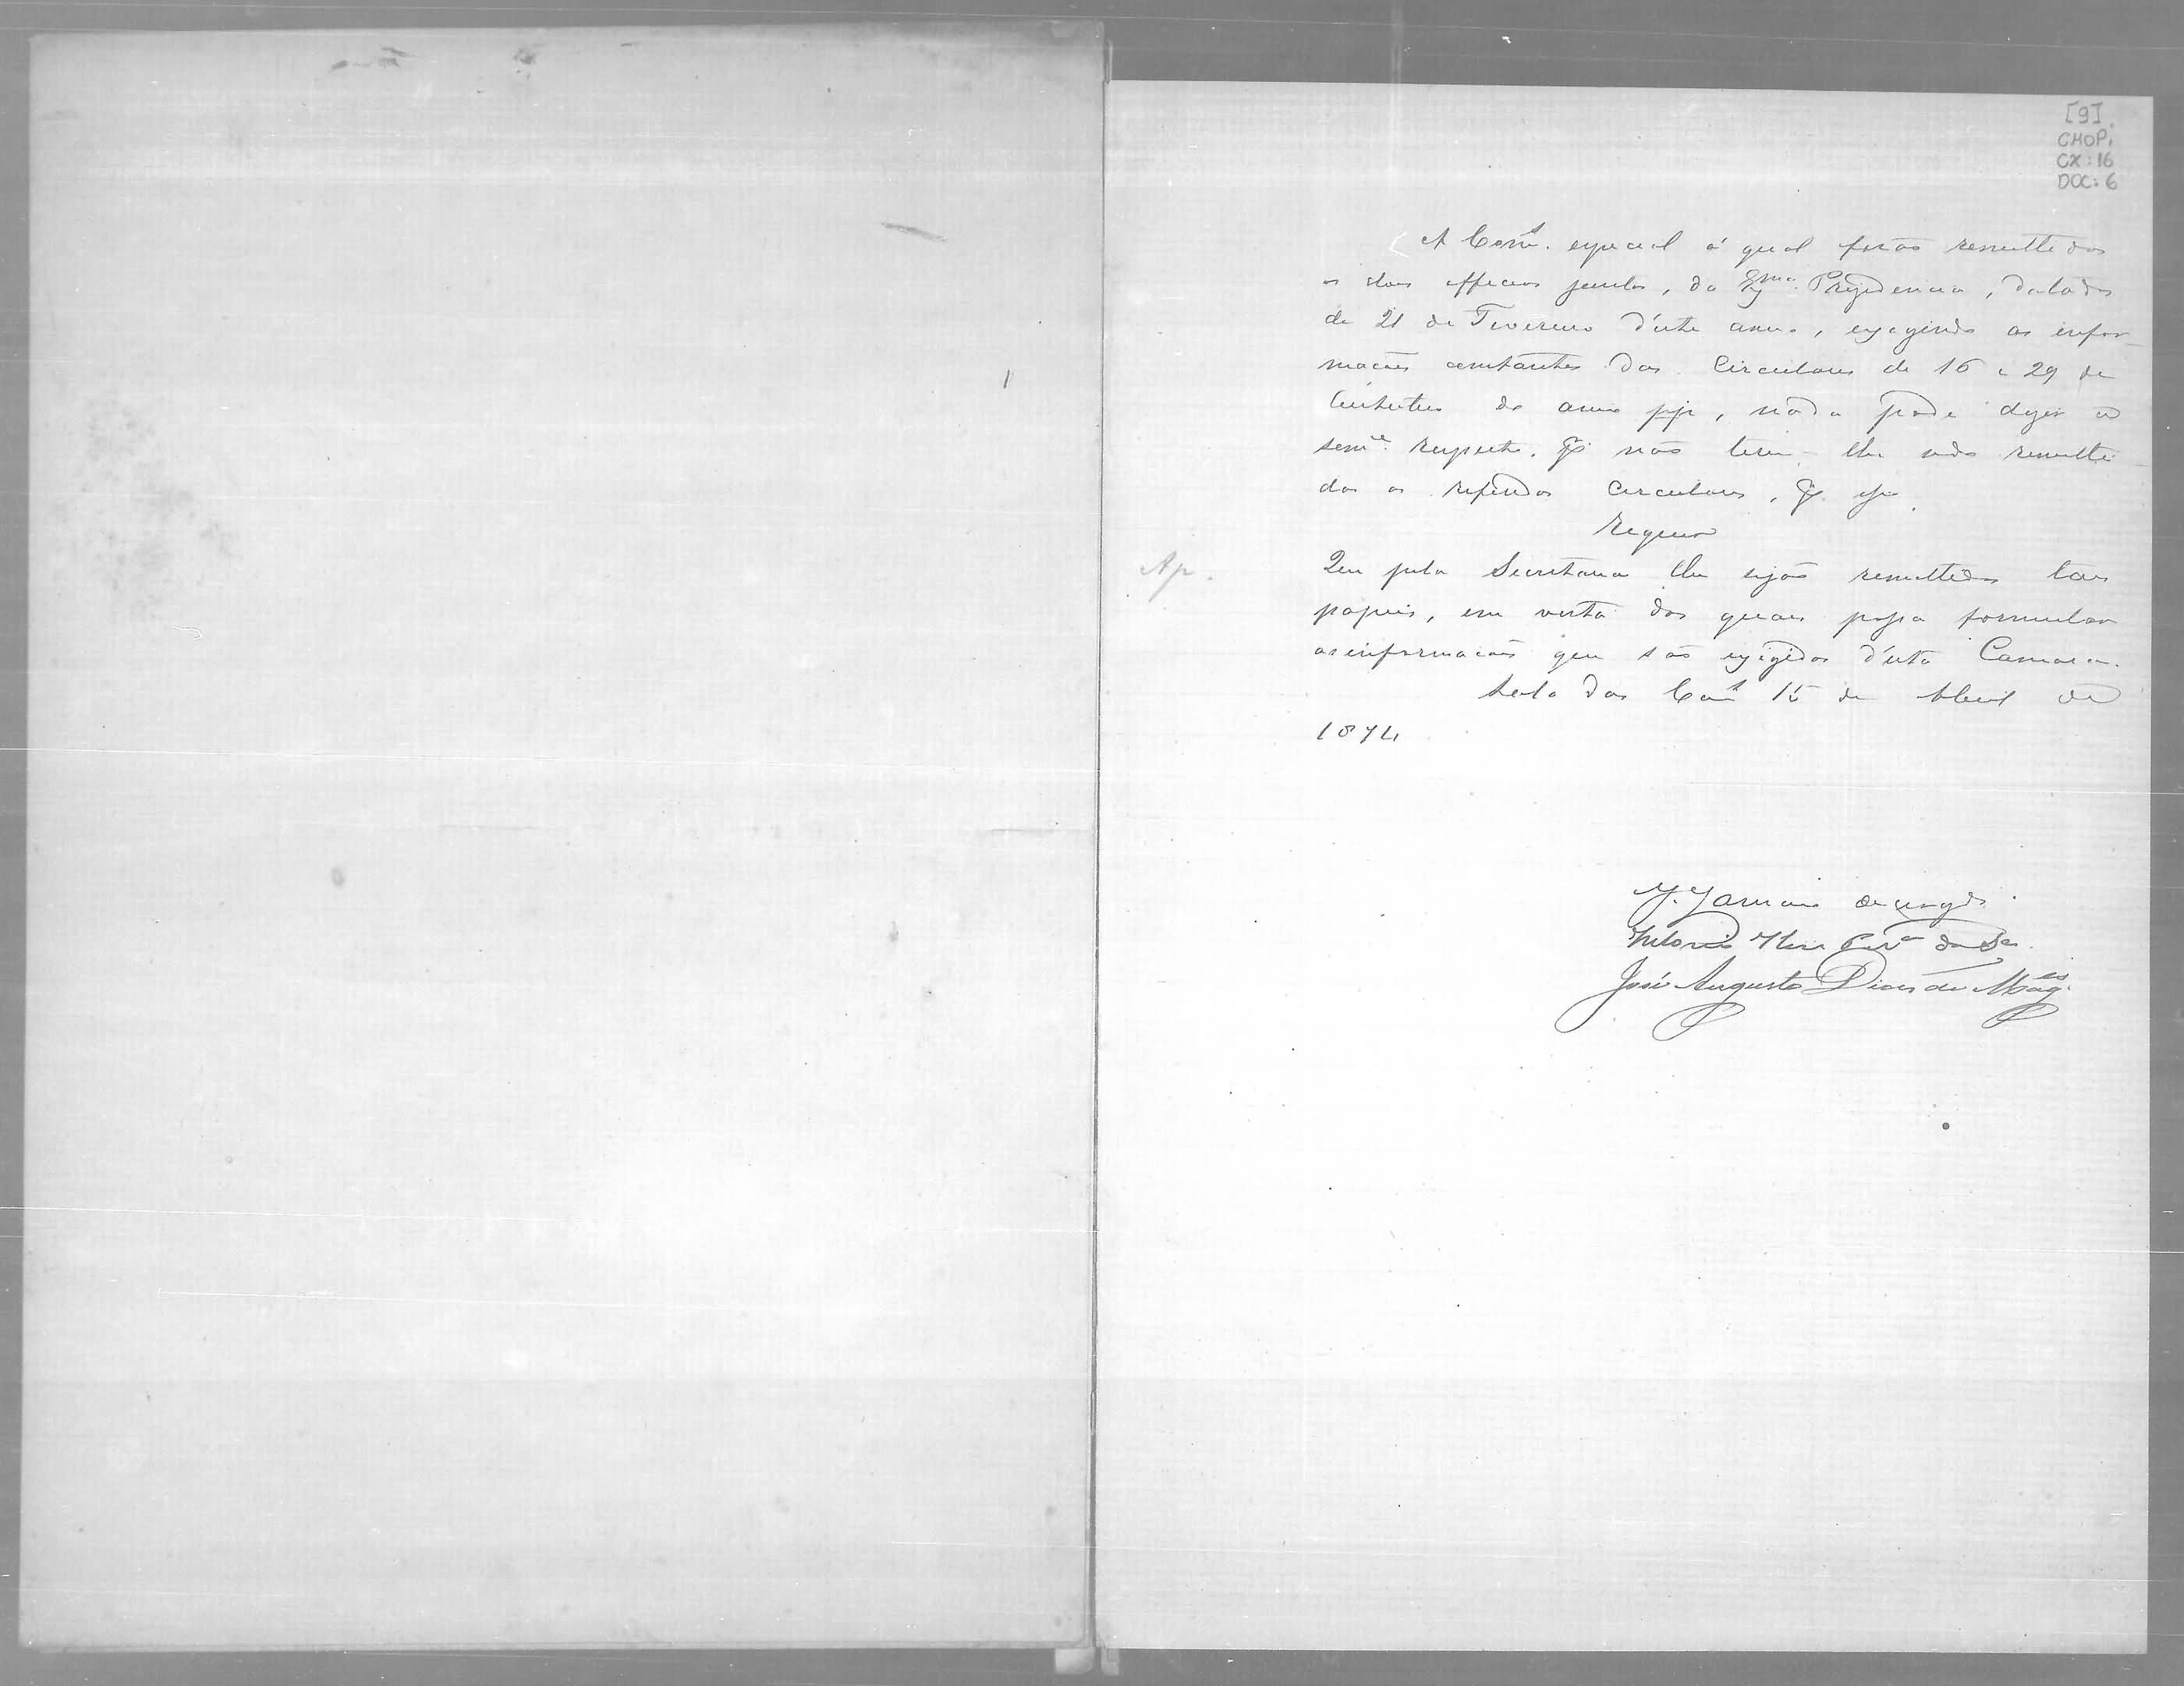 [9]
CMOP,
CX: 16
DOC: 6
A Com.^s especial á qual forão remettidos
os dous officios juntos, da Ex^ma. Prezidencia, datados
de 21 de Fevereiro d'este anno, exegindo as infor-
mações constantes das Circulares de 16 e 29 de
do anno pp, nada pode dizer a
sem^e respeito, p^r não terem-lhe sido remetti-
das as referidas Circulares, p^r isso
Requer
Ap.
Que pela Secretaria lhe sejão remettidos taes
papeis, em vista dos quaes possa formular
as informacões que são exigidas d'esta Camara.
Sala das Com^s 15 de Abril de
1874
José Augusto Dias de Mag.^es